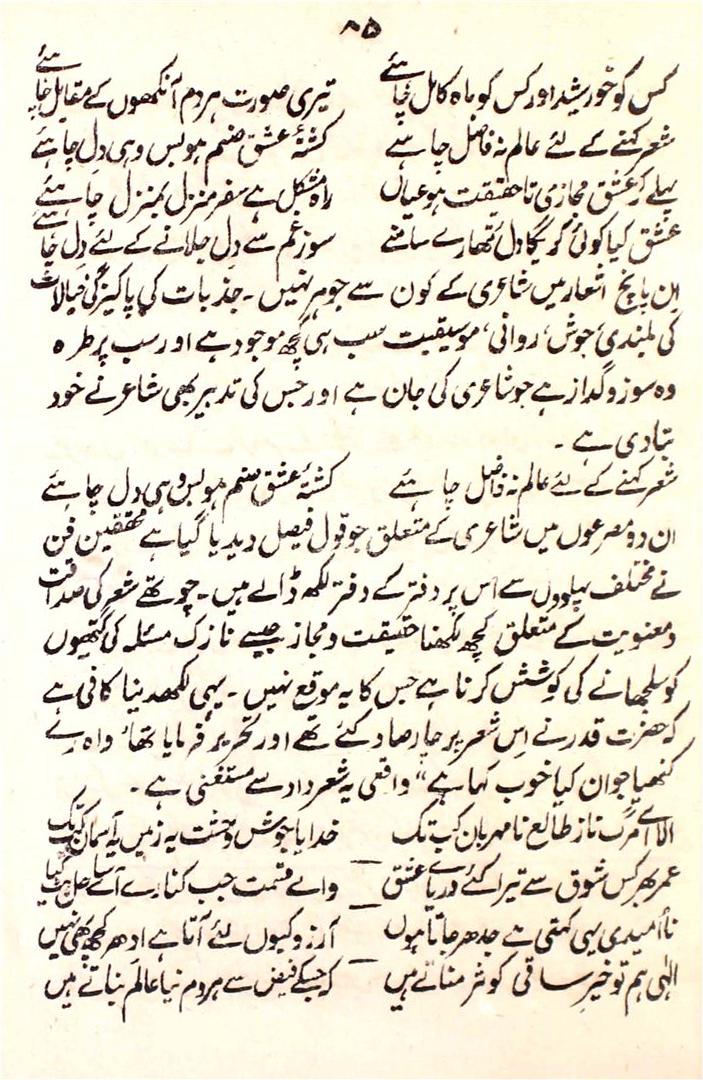 ۸۵
کس کو خورشید اور کس کو ماہ کامل چاہئے تیری صورت ہر دم آنکھوں کے مقابل چاہئے
شعر کہنے کے لئے عالم نہ فاضل چاہئے کشتۂ عشق صنم ہو بس وہی دل چاہئے
پہلے عشق مجازی تا حقیقت ہو عیاں راہ مشکل ہے سفر منزل بمنزل چاہئے
عشق کیا کوئی کریگا دل تمھارے سامنے سوز غم سے دل جلانے کے لئے دل چاہئے
ان پانچ اشعار میں شاعری کے کون سے جوہر نہیں۔ جذبات کی پاکیزگی خیالات
کی بلندی، جوش، روانی، موسیقیت سب ہی کچھ موجود ہے اور سب پر طرہ
وہ سوز و گداز ہے جو شاعری کی جان ہے اور جس کی تدبیر بھی شاعر نے خود
بتا دی ہے۔
شعر کہنے کے لئے عالم نہ فاضل چاہئے کشتۂ عشق صنم ہو بس وہی دل چاہئے
ان دو مصرعوں میں شاعری کے متعلق جو قول فیصل دیدیا گیا ہے محققین فن
نے مختلف پہلووں سے اس پر دفتر کے دفتر لکھ ڈالے ہیں۔ چوتھے شعر کی صداقت
و معنویت کے متعلق کچھ لکھنا حقیقت و مجاز جیسے نازک مسئلہ کی گتھیوں
کو سلجھانے کی کوشش کرنا ہے جس کا یہ موقع نہیں۔ یہی لکھدینا کافی ہے
کہ حضرت قدر نے اس شعر پر چار صاد کئے تھے اور تحریر فرمایا تھا، واہ رے
کنھیا جوان کیا خوب کہا ہے" واقعی یہ شعر داد سے مستغنی ہے۔
الا اے مرگ ناز طالع نامہرباں کب تک خدایا جوش وحشت یہ زمیں یہ آسماں کب تک
عمر بھر کس شوق سے تیرا کئے دریاے عشق وائے قسمت جب کنارے آے ساحل ہٹ گیا
نا امیدی یہی کہتی ہے جدھر جاتا ہوں آرزو کیوں لئے آتا ہے ادھر کچھ بھی نہیں
الٰہی ہم تو خیر ساقی کوثر مناتے ہیں کہ جسکے فیض سے ہر دم نیا عالم بناتے ہیں